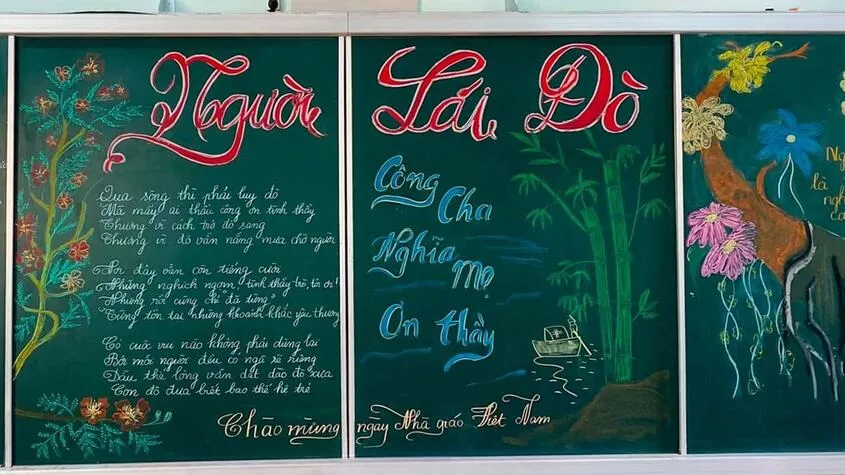 Người Lái Đò
Qua sông thì phải luy đò
Mà mấy ai thấu công ơn tình thầy
Thương vì cách trò đò sang
Thương vì đò vẫn nắng mưa chờ người
Nơi đây vẫn còn tiếng cười
Những nghịch ngợm, tình thầy trò, tôi ơi!
Nhưng rồi cũng chỉ "đã từng"
Từng tồn tại những khoảnh khắc yêu thương
Có cuộc vui nào không phải dừng lại
Bởi mỗi người đều có ngã rẽ riêng
Dẫu thế lòng vẫn dạt dào đò xưa
Con đò đưa biết bao thế hệ trẻ
Công
Cha
Nghĩa
Mẹ
Ơn thầy
Chào mừng ngày Nhà giáo Việt Nam
là